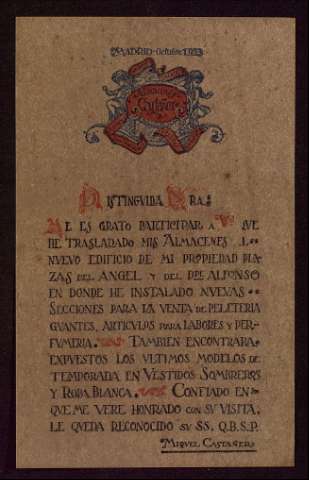 MADRID - Octubre 1923
ALMACENES
Castañer
DISTINGUIDA SRA:
ME ES GRATO PARTICIPAR A Vd QUE
HE TRASLADADO MIS ALMACENES AL
NUEVO EDIFICIO DE MI PROPIEDAD PLA
ZAS DEL ANGEL Y DEL PPE ALFONSO
EN DONDE HE INSTALADO NUEVAS
SECCIONES PARA LA VENTA DE PELETERIA
GUANTES, ARTICULOS PARA LABORES Y PER-
FUMERIA. TAMBIEN ENCONTRARA
EXPUESTOS LOS ULTIMOS MODELOS DE
TEMPORADA EN VESTIDOS SOMBREROS
Y ROPA BLANCA. CONFIADO EN
QUE ME VERE HONRADO CON SU VISITA,
LE QUEDA RECONOCIDO SU SS. Q.B.S.P.
MIGUEL CASTAÑER